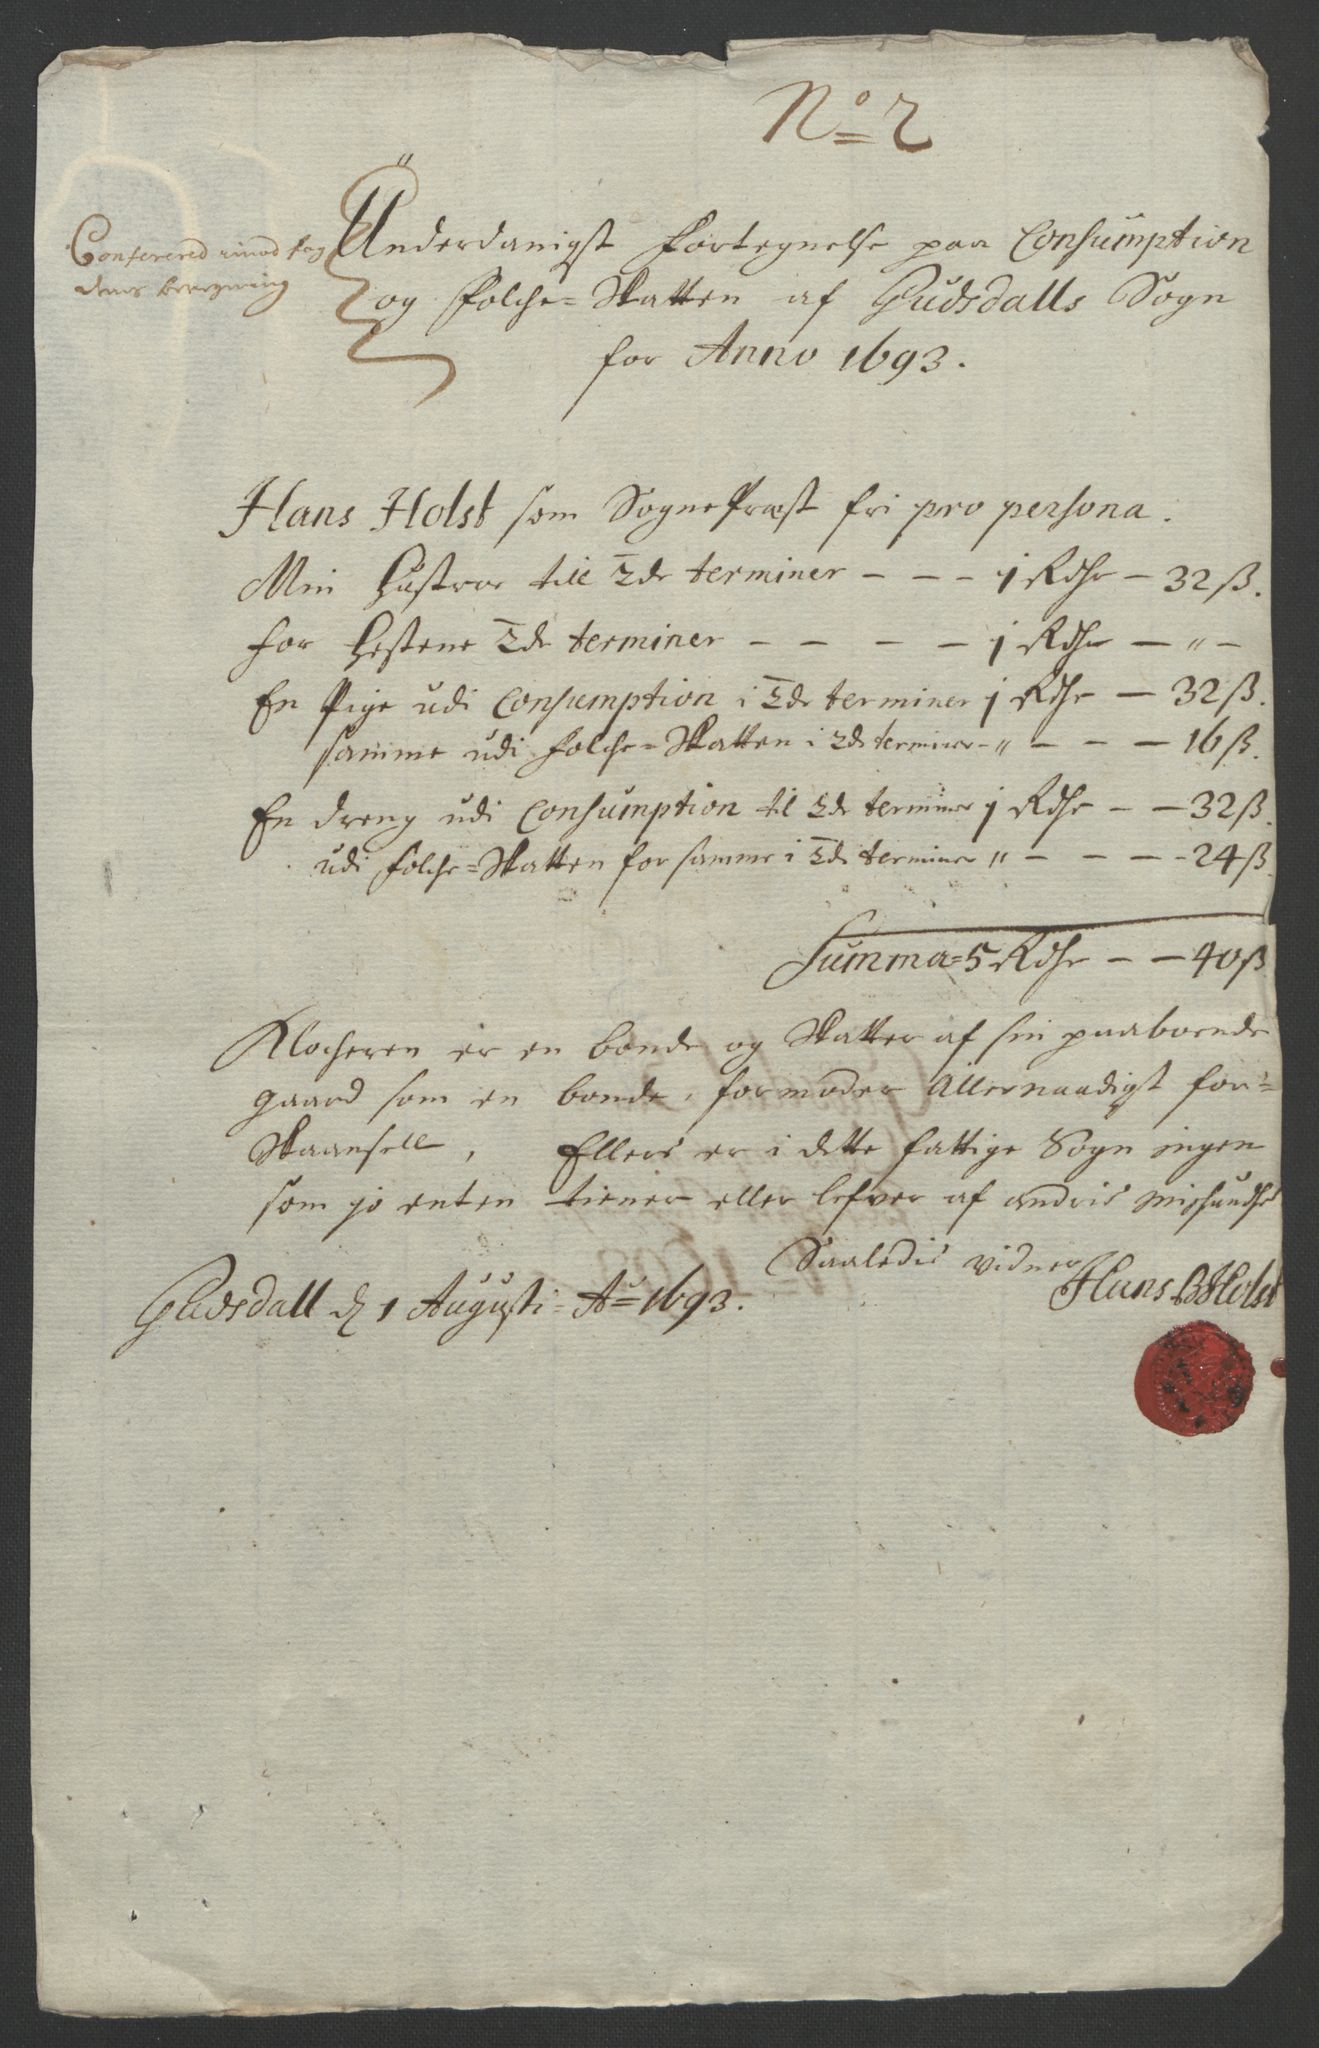 No 2
Conferered imod fog
dens beregning
Underdanigst fortegnelse paa Consumption
og Folche-Skatten af Gudsdalls Sogn
for Anno 1693.
Hans Holst som SognePræst fri pro persona.
Min Hustroe till 2de terminer - - - 1 Rdhr - 32 ß.
for Hestene 2de terminer - - - - 1 Rdhr - " -
En Pige udi Consumption i 2de terminer 1 Rdhr - 32 ß.
samme udi folche-Skatten i 2de terminer - " - - - 16 ß.
En dreng udi Consumption til 2de terminer 1 Rdhr - - 32 ß.
udi folche-Skatten for samme i 2de terminer " - - - - 24 ß.
Summa = 5 Rdhr - - 40 ß
Klocheren er en bonde og Skatter af sin paaboende
gaard som en bonde, formoder Allernaadigst for-
Skaansell, Ellers er i dette fattige Sogn ingen
som jo enten tiener eller lefver af andris Mishundhed
Saaledis vidner
Hans Holst
Gudsdall d 1 Augusti Ao 1693.